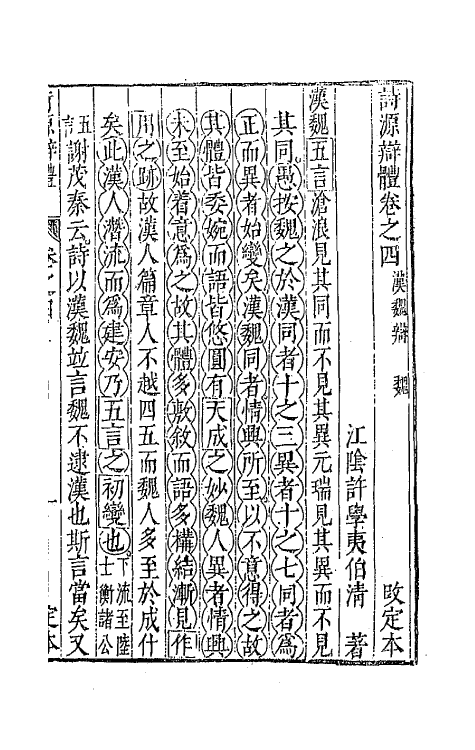 詩源辯體卷之四 漢魏辯 魏 攺定本
江陰許學夷伯清 著
漢魏五言滄浪見其同而不見其異元瑞見其異而不見
其同愚按魏之於漢同者十之三異者十之七同者爲
正而異者始變矣漢魏同者情興所至以不意得之故
其體皆委婉而語皆悠圓有天成之妙魏人異者情興
未至始着意爲之故其體多敷敘而語多構結漸見作
用之跡故漢人篇章人不越四五而魏人多至於成什
矣此漢人潛流而爲建安乃五言之初變也下流至陸士衡諸公五言
謝茂秦云詩以漢魏竝言魏不逮漢也斯言當矣又
定本